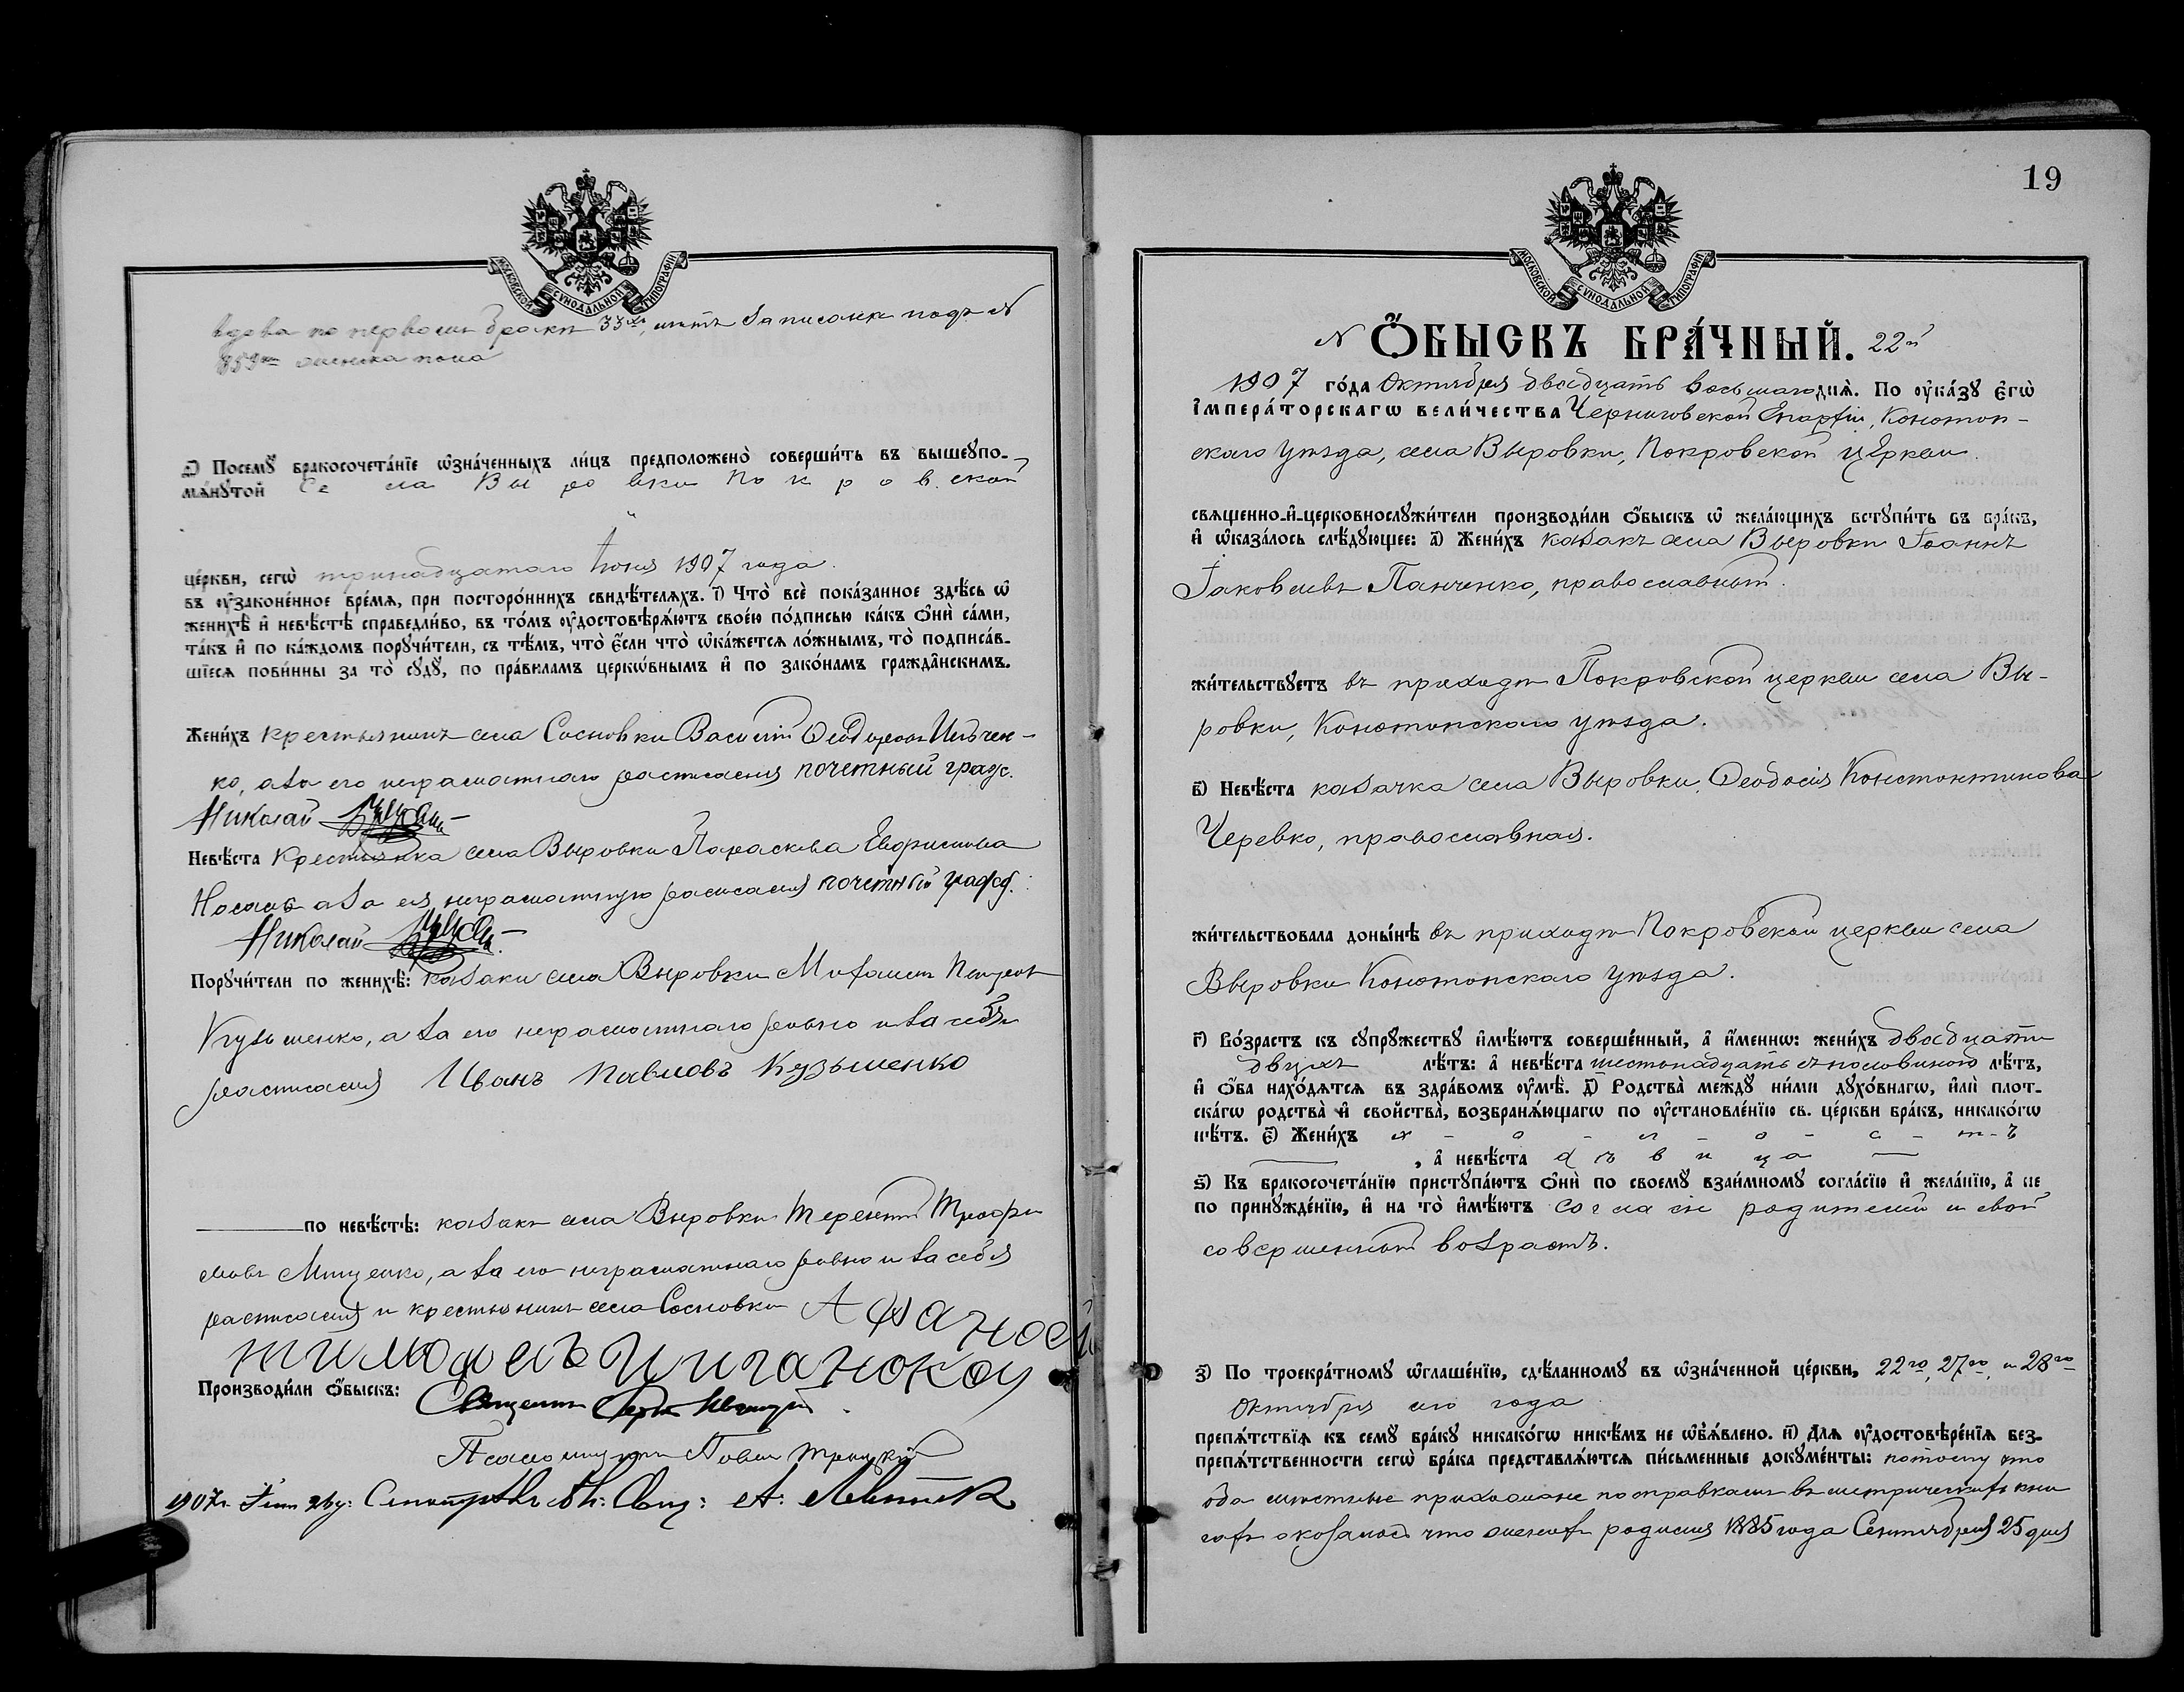 МОСКОВСКОЙ СУНОДАЛЬНОЙ ТИПОГРАФІИ
вдова по первомъ бракѣ 33хъ лѣтъ записана подъ №
359мъ
Ѳ҃) Посемꙋ̀ бракосочета́нїе ѡ҆зна́ченныхъ ли́цъ предположено̀ соверши́ть въ вышеꙋпо-
мѧ́нꙋтой Се ла Вы ро вки По к р о в ской
це́ркви, сегѡ̀ тринадцатаго Іюня 1907 года.
въ ᲂу҆законе́нное вре́мѧ, при посторо́ннихъ свидѣ́телѧхъ. І҃) Что̀ всѐ пока́занное здѣ́сь ѡ҆
женихѣ̀ и҆ невѣ́стѣ справедли́во, въ то́мъ ᲂу҆достовѣрѧ́ютъ свое́ю по́дписью ка́къ ѻ҆нѝ са́ми,
та́къ и҆ по ка́ждомъ порꙋчи́тели, съ тѣ́мъ, что̀ є҆́сли что̀ ѡ҆ка́жетсѧ ло́жнымъ, то̀ подписа́в-
шїесѧ пови́нны за то̀ сꙋдꙋ̀, по пра́виламъ церкѡ́внымъ и҆ по зако́намъ гражда̑нскимъ.
Жени́хъ крестьянинъ села Сосновки Василій Ѳеодоровъ Ильчен-
ко, а за его неграмотнаго росписался почетный гражд.
Николай
Невѣ́ста Крестьянка села Выровки Параскева
Носачъ а за ея неграмотную росписался почетный гражд.
Николай
Порꙋчи́тели по женихѣ̀: казаки села Выровки Петровъ
Кузьменко, а за его неграмотнаго ровно и за себя
росписался Иванъ Павловъ Кузьменко
по невѣ́стѣ: казакъ села Выровки Терентій Трофи
мовъ Мищенко, а за его неграмотнаго ровно и за себя
росписался и крестьянинъ села Сосновки Афанасі
тимофеевъ Циганокоу
Производи́ли ѻ҆́быскъ: Священникъ
Псаломщикъ Павелъ Троицкій
1907г.
19
МОСКОВСКОЙ СУНОДАЛЬНОЙ ТИПОГРАФІИ
№ Ѻ҆́БЫСКЪ БРА́ЧНЫЙ. 22й
1907 го́да Октября двадцать восьмаго днѧ̀. По ᲂу҆ка́зꙋ є҆гѡ̀
і҆мпера́торскагѡ вели́чества Черниговской Епархіи, Конотоп-
скаго уѣзда, села Выровки, Покровской церкви.
свѧщенно-и҆-церковнослꙋжи́тели производи́ли ѻ҆́быскъ ѡ҆ жела́ющихъ встꙋпи́ть въ бра́къ,
и҆ ѡ҆каза́лось слѣ́дꙋющее: а҃) Жени́хъ казакъ села Выровки Іоаннъ
Іаковлевъ Панченко, православный.
жи́тельствꙋетъ въ приходѣ Покровской церкви села Вы-
ровки, Конотопскаго уѣзда.
в҃) Невѣ́ста казачка села Выровки, Ѳеодосія Константинова
Черевко, православная.
жи́тельствовала доны́нѣ въ приходѣ Покровской церкви села
Выровки Конотопскаго уѣзда.
г҃) Во́зрастъ къ сꙋпрꙋ́жествꙋ и҆мѣ́ютъ соверше́нный, а҆ и҆́меннѡ: жени́хъ двадцати
двухъ лѣ́тъ: а҆ невѣ́ста шестнадцать съ половиною лѣ́тъ,
и҆ ѻ҆́ба нахо́дѧтсѧ въ здра́вомъ ᲂу҆мѣ̀. д҃) Родства̀ междꙋ̀ ни́ми дꙋхо́внагѡ, и҆лѝ плот-
ска́гѡ родства̀ и҆ сво́йства, возбранѧ́ющагѡ по ᲂу҆становле́нїю св. це́ркви бра́къ, никако́гѡ
нѣ́тъ. є҃) Жени́хъ х - о - л - о - с - т - ъ
, а҆ невѣ́ста д ѣ в и ца
ѕ҃) Къ бракосочета́нїю пристꙋпа́ютъ ѻ҆нѝ по своемꙋ̀ взаи́мномꙋ согла́сїю и҆ жела́нїю, а҆ не
по принꙋжде́нїю, и҆ на то̀ и҆мѣ́ютъ согласіе родителей и свой
совершенный возрастъ.
з҃) По троекра́тномꙋ ѡ҆глаше́нїю, сдѣ́ланномꙋ въ ѡ҆зна́ченной це́ркви, 22го, 27го, и 28го
Октября сего года
препѧ́тствїѧ къ семꙋ̀ бра́кꙋ никако́гѡ никѣ́мъ не ѡ҆б̾ѧ́влено. и҃) Длѧ̀ ᲂу҆достовѣре́нїѧ без-
препѧ́тственности сегѡ̀ бра́ка представлѧ́ютсѧ пи́сьменные докꙋме́нты: потому что
оба мѣстные прихожане по справкамъ въ метрическихъ кни
гахъ оказалось что женихъ родился 1885 года Сентября 25 дня